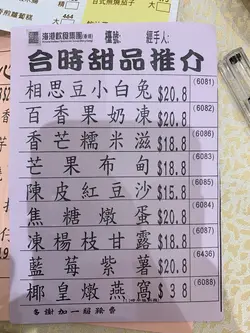 海港飲食集團(香港) 檯號: 經手人:
合時甜品推介
相思豆小白兔 $20.8 (6081)
百香果奶凍 $20.8 (6082)
香芒糯米滋 $18.8 (6086)
芒果布甸 $18.8 (6083)
陳皮紅豆沙 $15.8 (6085)
焦糖燉蛋 $20.8 (6084)
凍楊枝甘露 $18.8 (6087)
藍莓紫薯 $20.8 (6436)
椰皇燉燕窩 $38 (6088)
多謝加一服務費